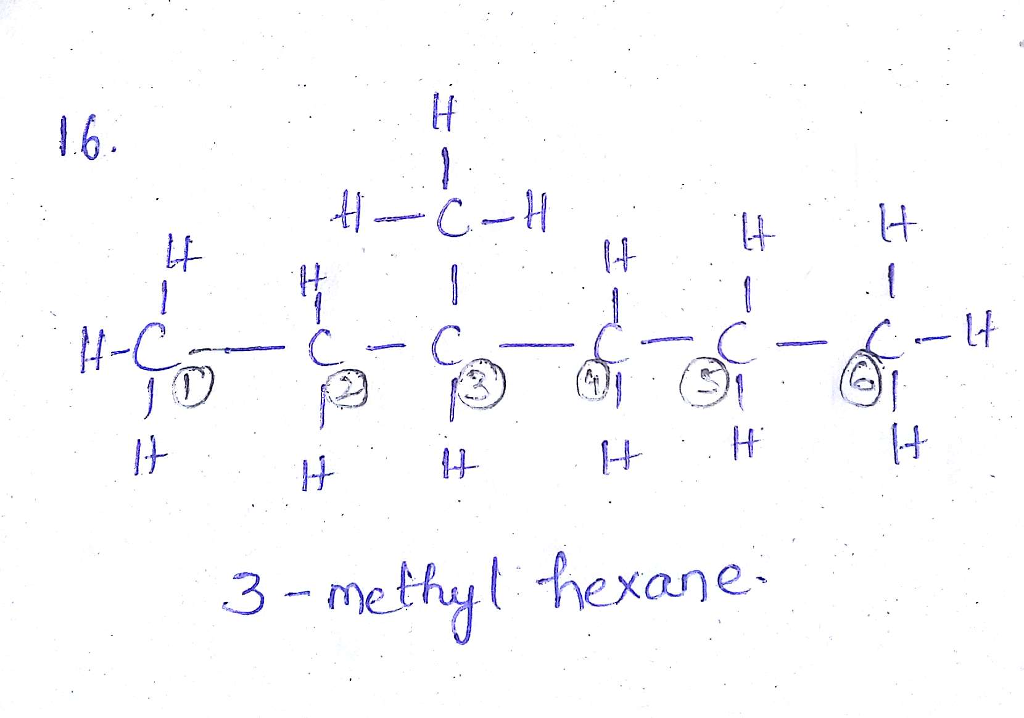 16.
H
H-C-H
H H H H H
H-C-C-C-C-C-C-H
1 2 3 4 5 6
H H H H H H
3-methyl hexane.